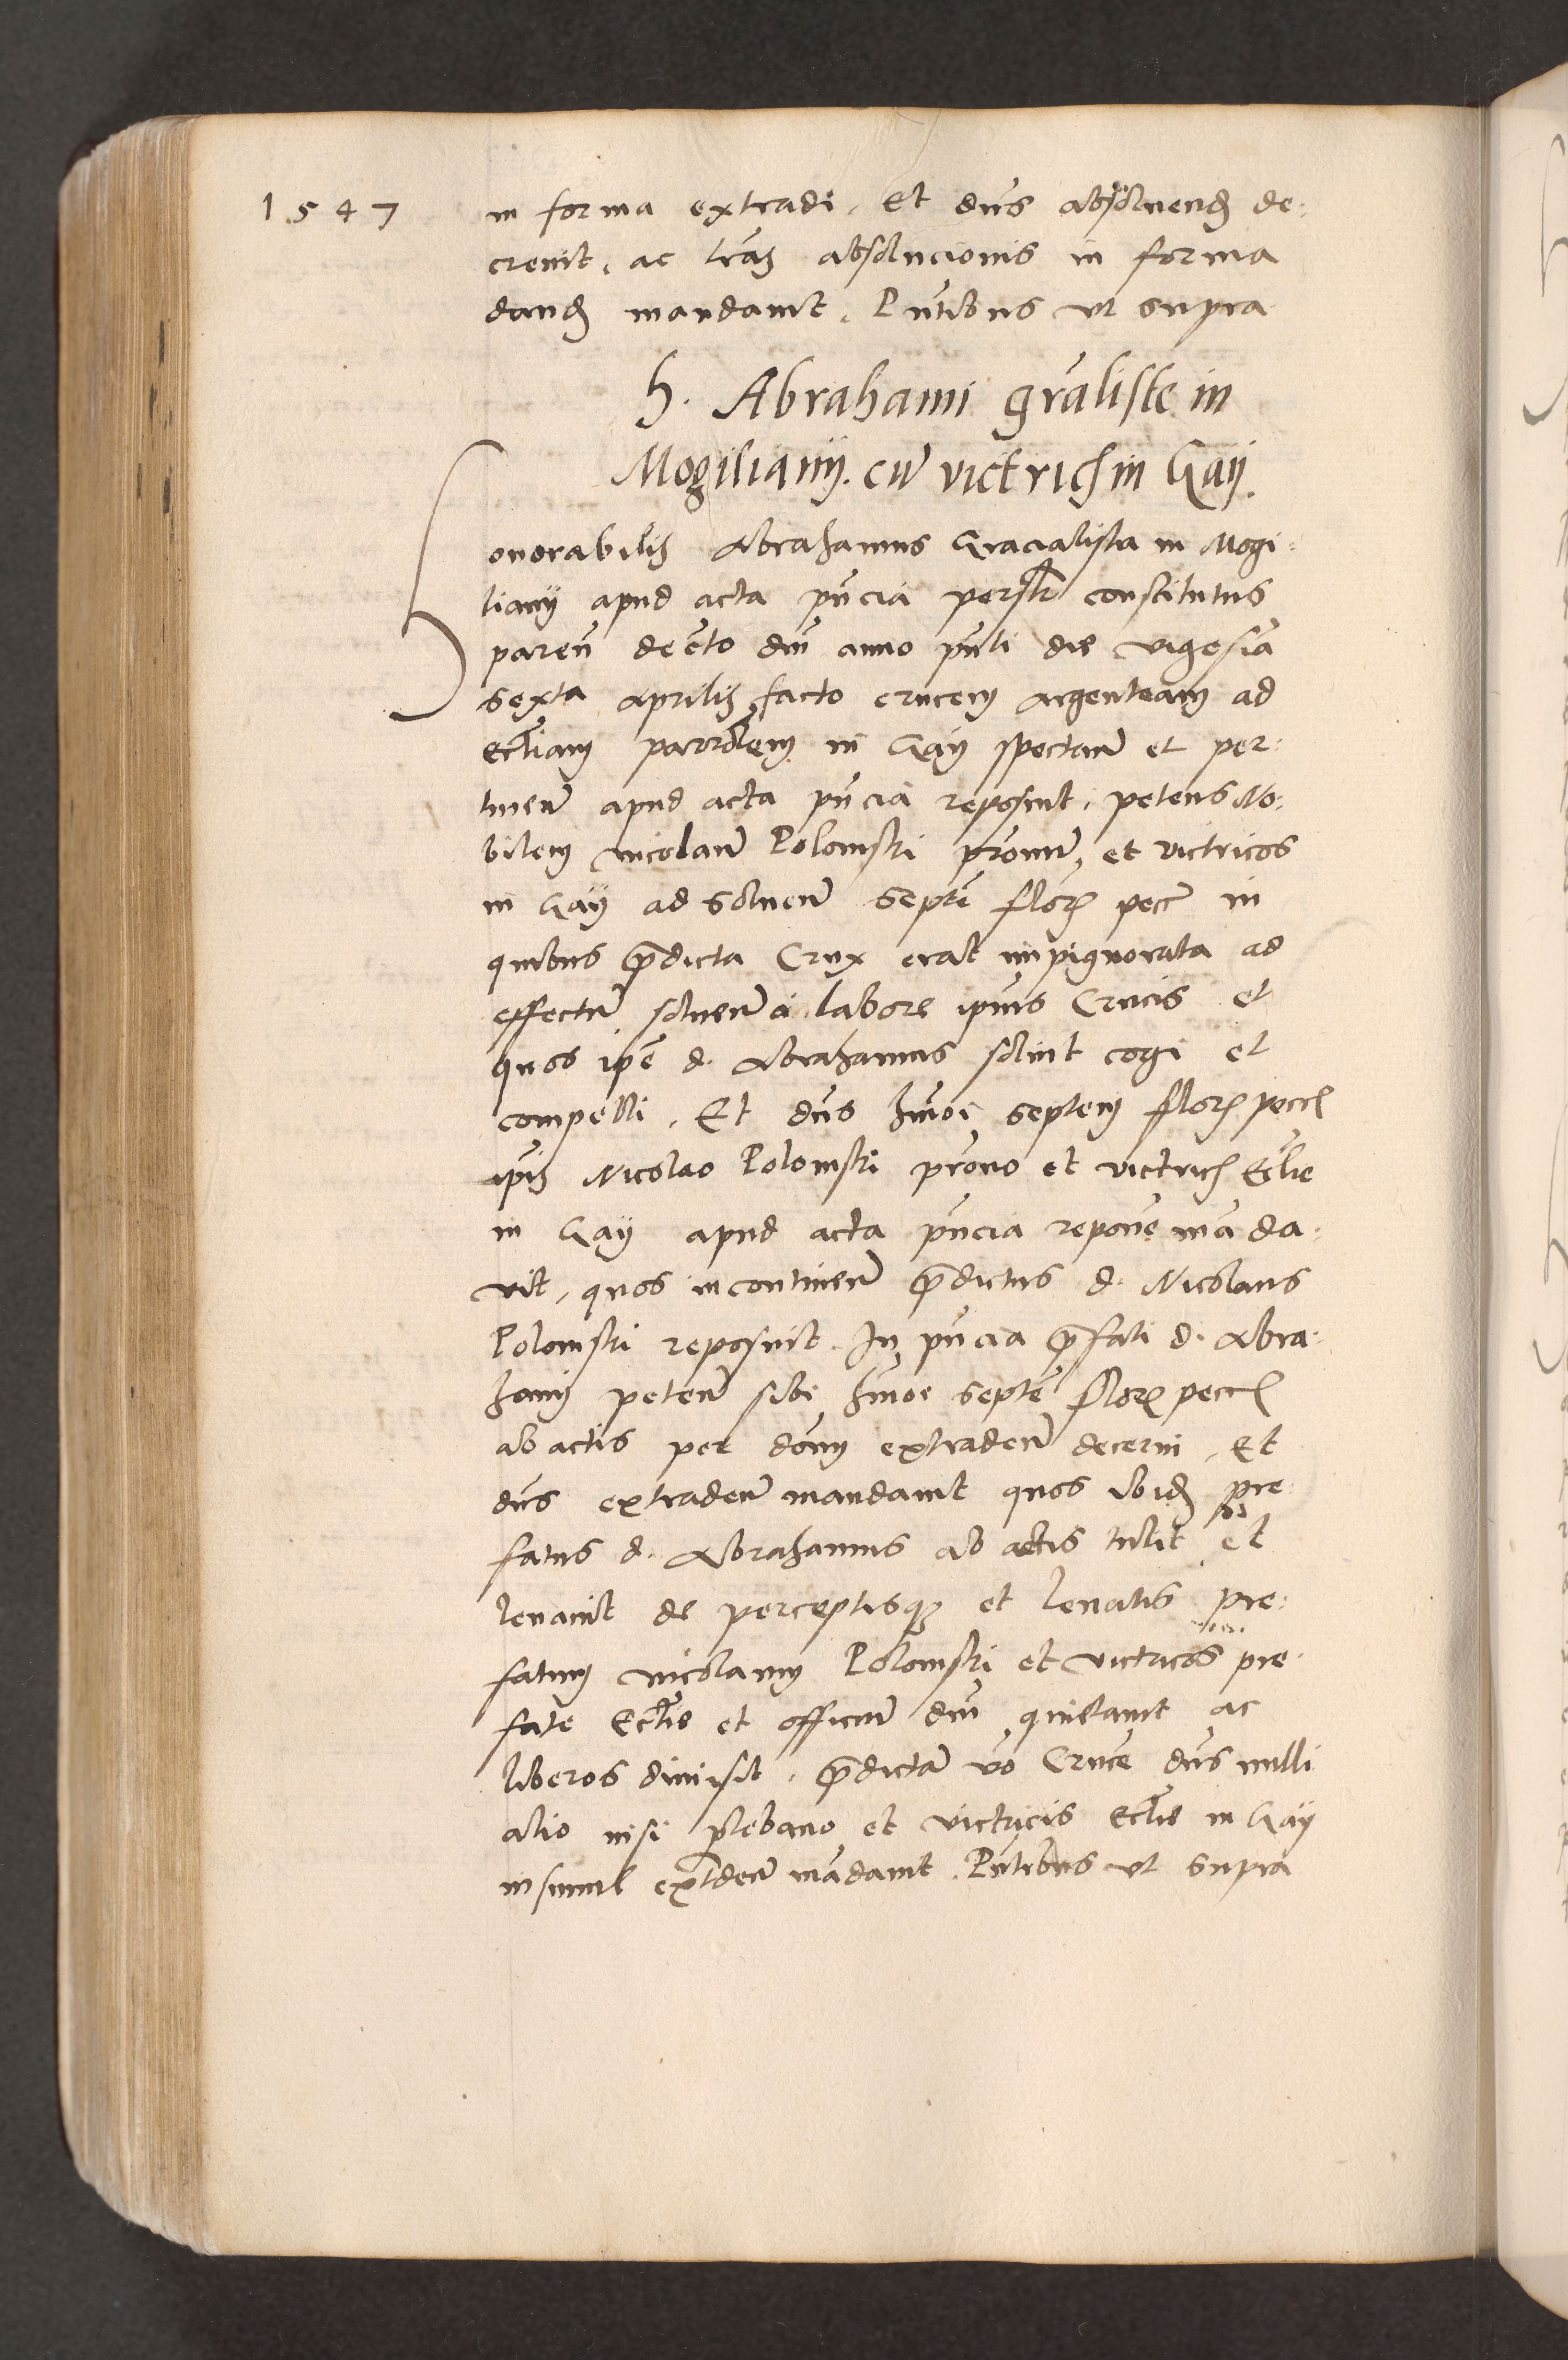 1547
in forma extradi, Et dns absoluend de:
creuit, ac lras absolucionis in forma
dand mandauit. Pntibus vt supra
h. Abrahami graliste in
Mogiliany. cu victrich in Gay.
Honorabilis Abrahamus Gracialista in Mogi:
liany apud acta pncia personlr constitutus
paren decto dni anno pnti die vigesia
sexta Aprilis facto crucem argenteam ad
Eccliam parrochlem in Gay spectan et per:
tinen apud acta pncia reposuit, petens No:
bilem Nicolaum Polomski pronum, et victricos
in Gay ad soluen septe flor pecc in
quibus predicta Crux erat impignorata ad
effectu soluen a labore ipius Crucis et
quos ipe d. Abrahamus soluit cogi et
compelli, Et dns hmoi septem flor pecc
ipis Nicolao Polomski prono et victrich Eclie
in Gay apud acta pncia repone manda:
vit, quos incontinen predictus d. Nicolaus
Polomski reposuit. In pncia prefati d. Abra:
hami peten sibi hmoi septe flor pecc
ab actis per dnm extraden decerni, Et
dns extraden mandauit quos ibid pre:
fatus d. Abrahamus ab actis tulit et
leuauit de perceptisque et leuatis pre:
fatum Nicolaum Polomski et victricos pre:
fate Ecclie et officium dni quitauit ac
liberos dimisit, predicta vo Cruce dns nulli
alio nisi plebano et victricis Ecclie in Gay
insimul extraden madauit. Pntibus vt supra